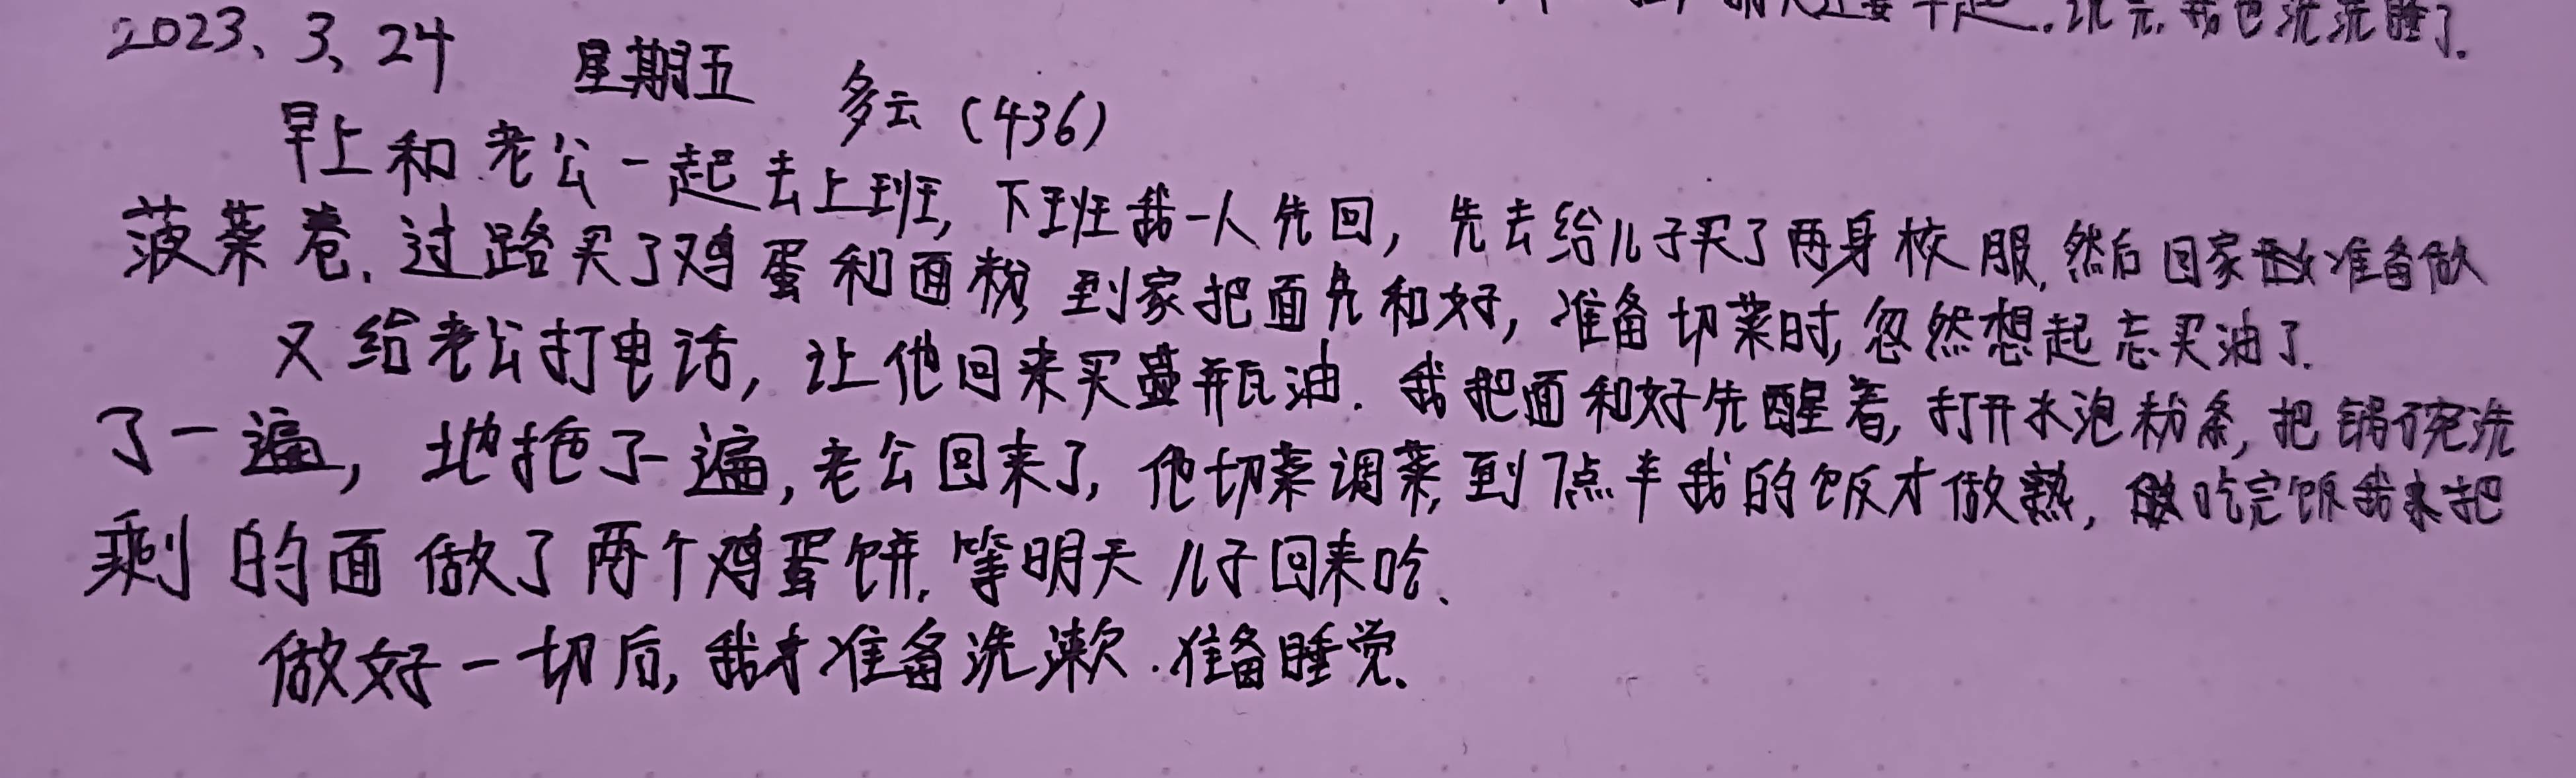 早起.洗完.我也洗洗睡了.
2023、3、24 星期五 多云(436)
早上和老公一起去上班,下班我一人先回,先去给儿子买了两身校服,然后回家准备做
菠菜卷.过路买了鸡蛋和面粉,到家把面先和好,准备切菜时,忽然想起忘买油了.
又给老公打电话,让他回来买瓶油.我把面和好先醒着,打开水泡粉条,把锅碗洗
了一遍,地拖了一遍,老公回来了,他切菜调菜,到7点半我的饭才做熟,吃完饭我来把
剩的面做了两个鸡蛋饼.等明天儿子回来吃.
做好一切后,我才准备洗漱.准备睡觉.